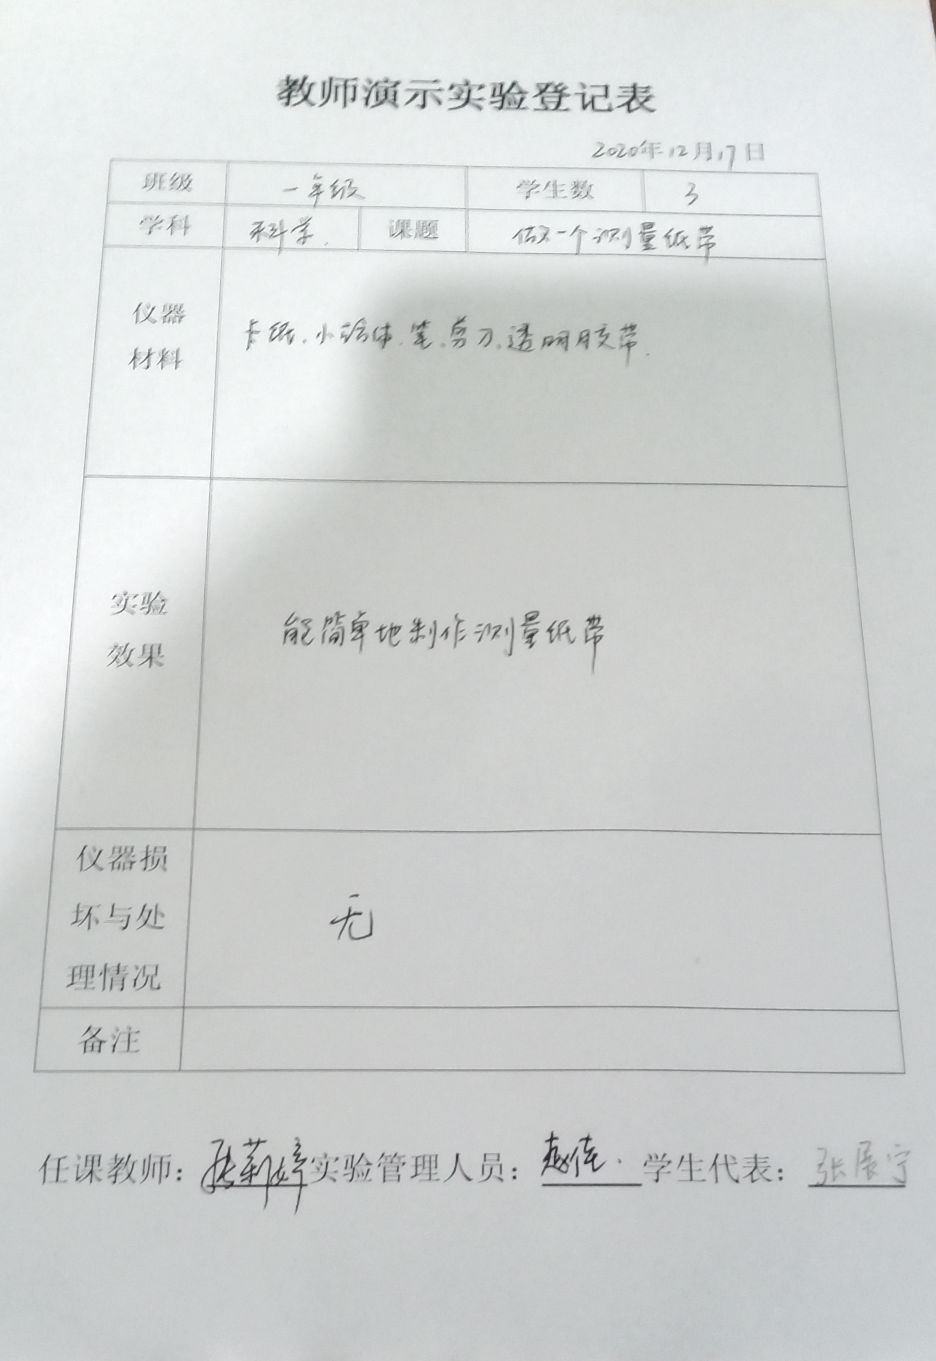 教师演示实验登记表
2020年12月17日
班级 一年级 学生数 3
学科 科学. 课题 做一个测量纸带
仪器
材料
卡纸、小治体、笔、剪刀、透明胶带.
实验
效果
能简单地制作测量纸带
仪器损
坏与处
理情况
无
备注
任课教师：张莉婷 实验管理人员： 学生代表：张展宁